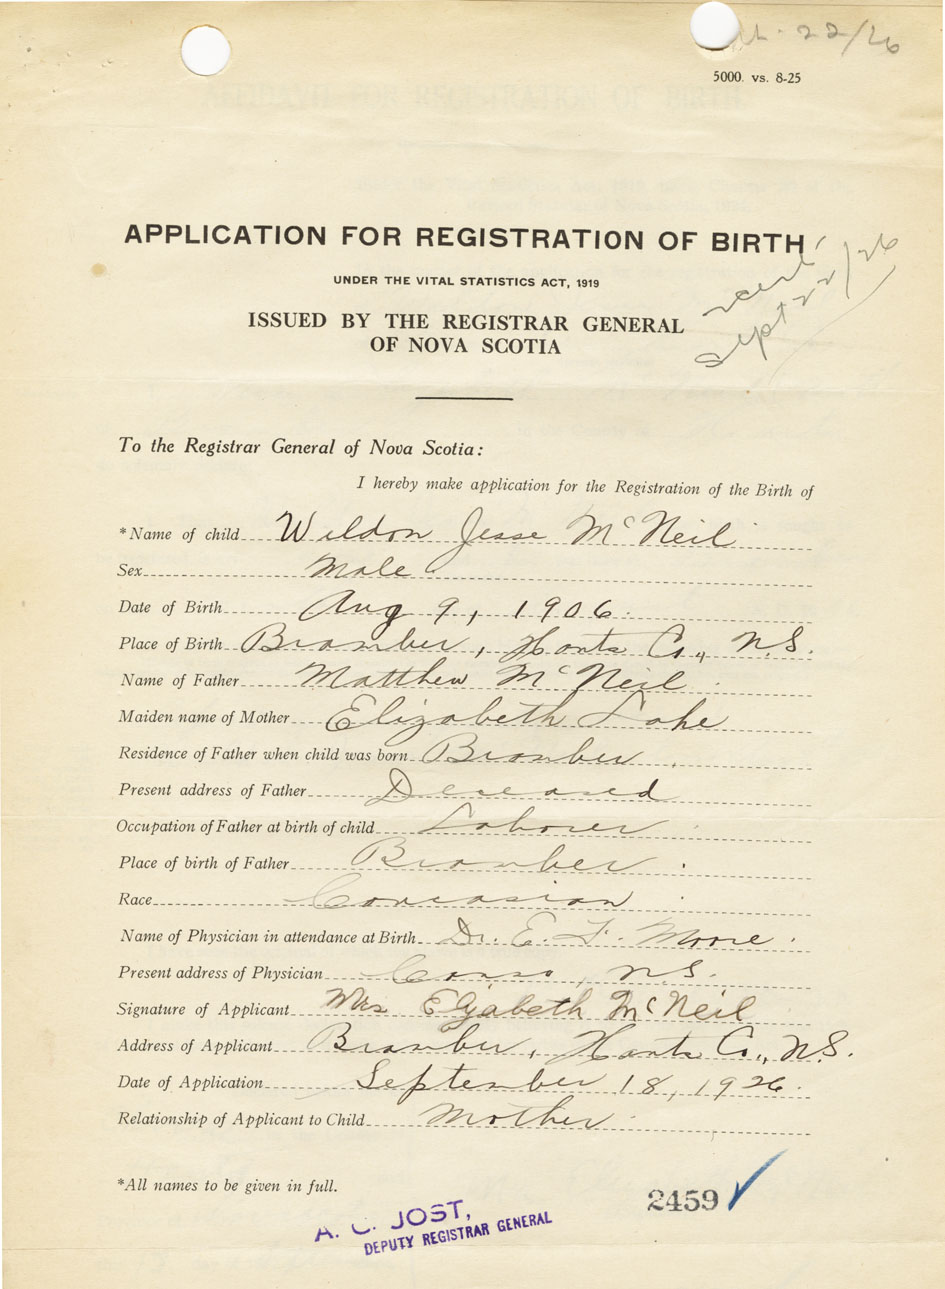 22/26
5000. vs. 8-25
APPLICATION FOR REGISTRATION OF BIRTH
UNDER THE VITAL STATISTICS ACT, 1919
ISSUED BY THE REGISTRAR GENERAL
OF NOVA SCOTIA
Sept 22/26
To the Registrar General of Nova Scotia:
I hereby make application for the Registration of the Birth of
*Name of child Wildon Jesse McNeil
Sex Male
Date of Birth Aug 9, 1906.
Place of Birth Bramber, Hants Co., N.S.
Name of Father Matthew McNeil
Maiden name of Mother Elizabeth Lake
Residence of Father when child was born Bramber.
Present address of Father Deceased
Occupation of Father at birth of child Laborer
Place of birth of Father Bramber.
Race Caucasian
Name of Physician in attendance at Birth Dr. E. F. Moore.
Present address of Physician Canso, N.S.
Signature of Applicant Mrs Elizabeth McNeil
Address of Applicant Bramber, Hants Co., N.S.
Date of Application September 18, 1926.
Relationship of Applicant to Child Mother
*All names to be given in full.
2459
A. C. JOST,
DEPUTY REGISTRAR GENERAL